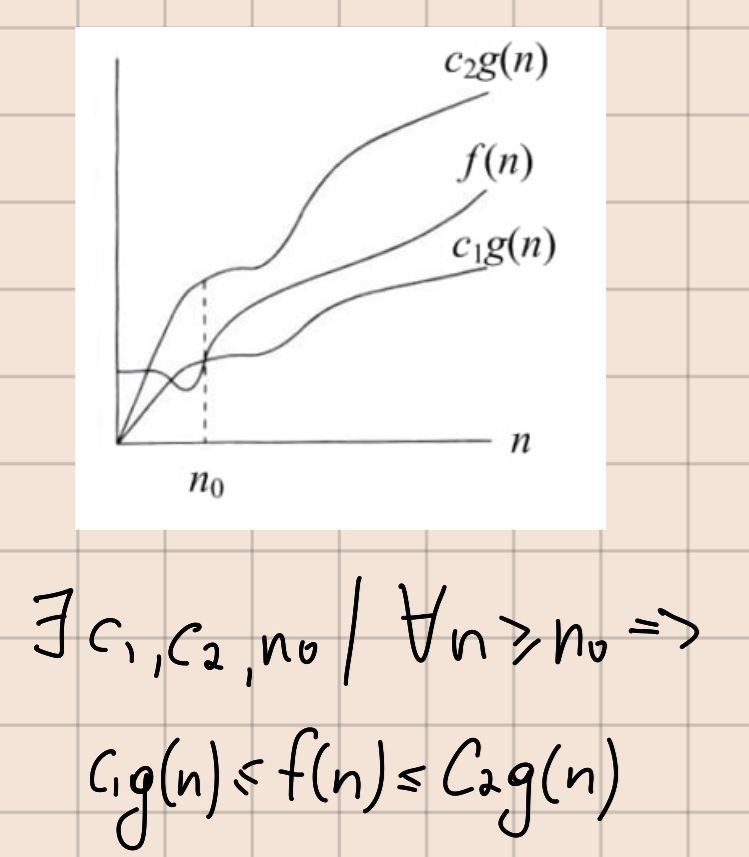 c₂g(n)
f(n)
c₁g(n)
n
n₀
∃ c₁, c₂, n₀ / ∀n ⩾ n₀ =>
c₁g(n) ⩽ f(n) ⩽ c₂g(n)